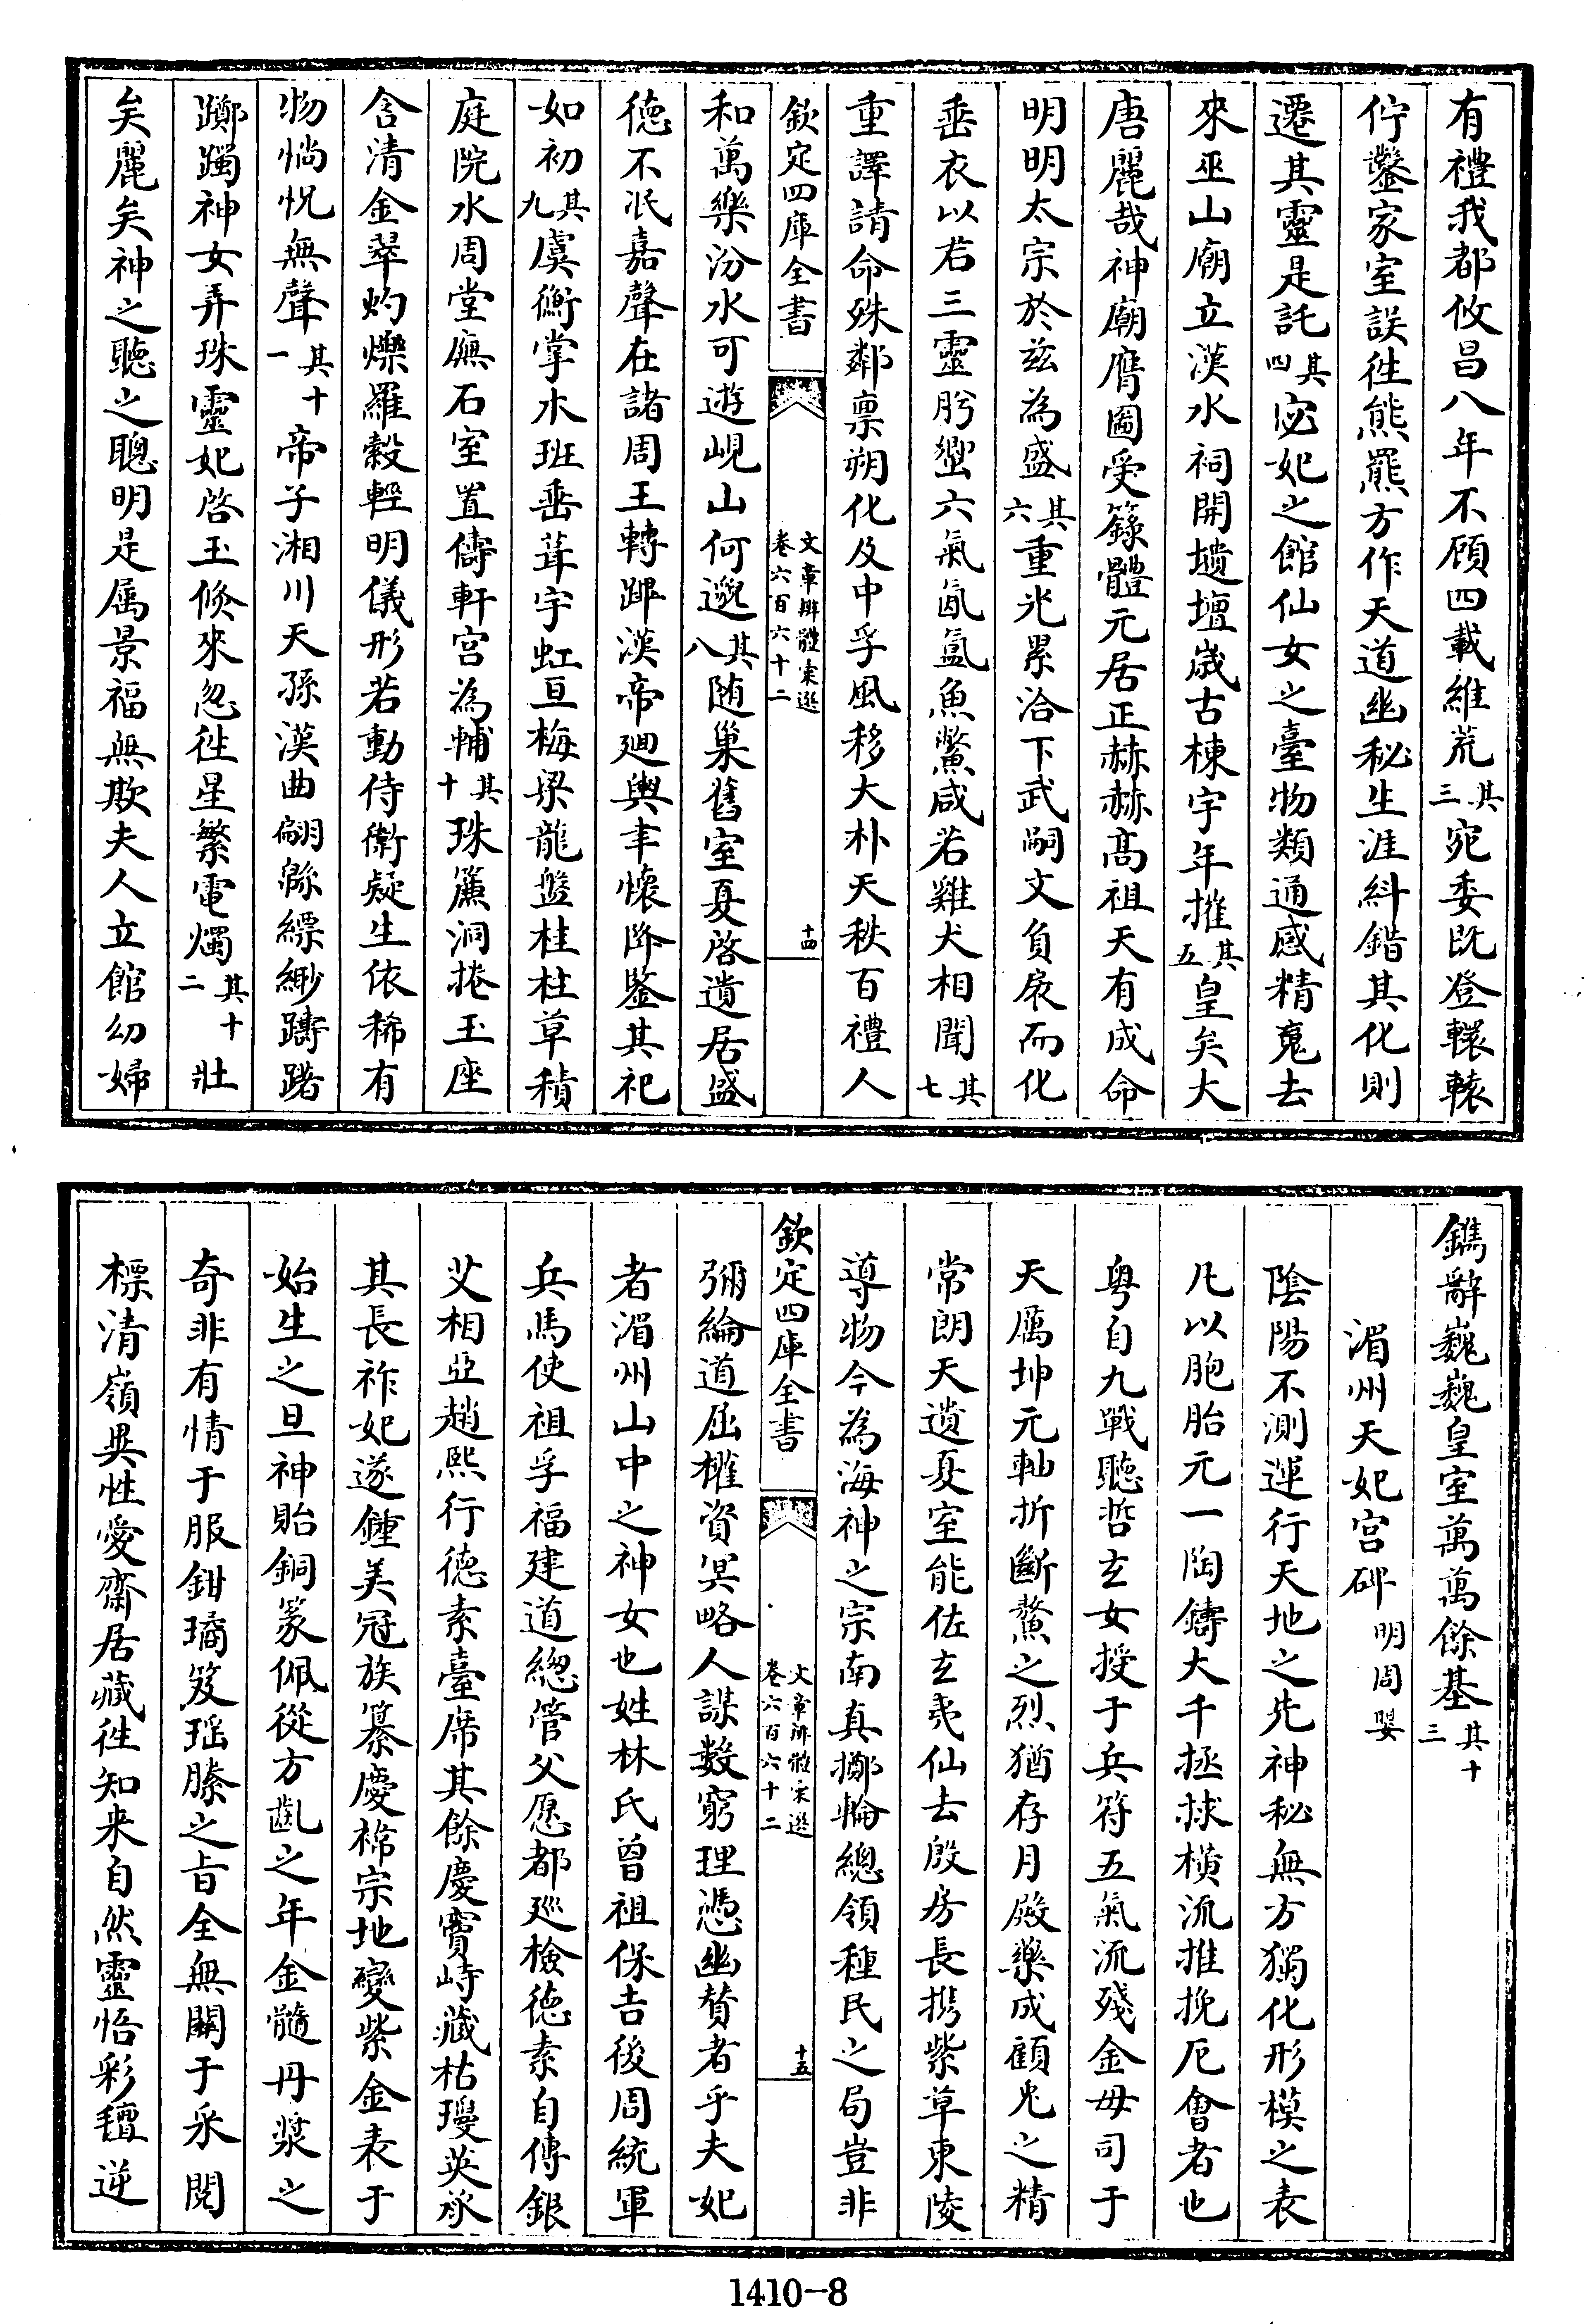 有禮我都攸昌八年不顧四載維荒其三宛委既登轘轅
佇鑿家室誤徃熊羆方作天道幽秘生涯糾錯其化則
遷其靈是託其四宓妃之館仙女之臺物類通感精䰟去
來巫山廟立漢水祠開壝壇歲古棟宇年摧其五皇矣大
唐麗哉神廟膺圖受籙體元居正赫赫髙祖天有成命
明明太宗於兹為盛其六重光累洽下武嗣文負扆而化
垂衣以若三靈肹蠁六氣氤氲魚鱉咸若雞犬相聞其七
重譯請命殊鄰禀朔化及中孚風移大朴天秩百禮人
欽定四庫全書
文章辨體彚選
卷六百六十二
十四
和萬樂汾水可遊峴山何邈其八随巢舊室夏啓遺居盛
德不泯嘉聲在諸周王轉蹕漢帝廻輿聿懷降鑒其祀
如初其九虞衡掌水班垂葺宇虹亘梅梁龍盤桂柱草積
庭院水周堂廡石室置儔軒宫為輔其十珠簾洞捲玉座
含清金翠灼爍羅縠輕明儀形若動侍衛疑生依稀有
物惝怳無聲其十一帝子湘川天孫漢曲翩緜縹緲躊躇
躑躅神女弄珠靈妃啓玉倐來忽徃星繁電燭其十二壯
矣麗矣神之聽之聰明是属景福無欺夫人立館幼婦
鐫辭巍巍皇室萬萬餘基其十三
湄州天妃宫碑 明周嬰
陰陽不測運行天地之先神秘無方獨化形模之表
凡以胞胎元一陶鑄大千拯捄横流推挽厄會者也
粤自九戰聽晢玄女授于兵符五氣流殘金母司于
天厲坤元軸折斷鰲之烈猶存月殿藥成顧兎之精
常朗天遺夏室能佐玄夷仙去殷房長携紫草東陵
導物今為海神之宗南真擲輪總領種民之局豈非
欽定四庫全書
文章辨體彚選
卷六百六十二
十五
彌綸道屈權資冥略人謀數窮理憑幽贊者乎夫妃
者湄州山中之神女也姓林氏曾祖保吉後周統軍
兵馬使祖孚福建道總管父愿都廵檢德素自傳銀
艾相亞趙熙行德素臺席其餘慶竇峙藏枯瓊英承
其長祚妃遂鍾美冠族纂慶棉宗地變紫金表于
始生之旦神貽銅篆佩從方齓之年金髓丹漿之
奇非有情于服鉗璚笈瑶縢之旨全無關于采閲
標清嶺異性愛齋居藏徃知来自然靈悟彩氊逆
1410-8